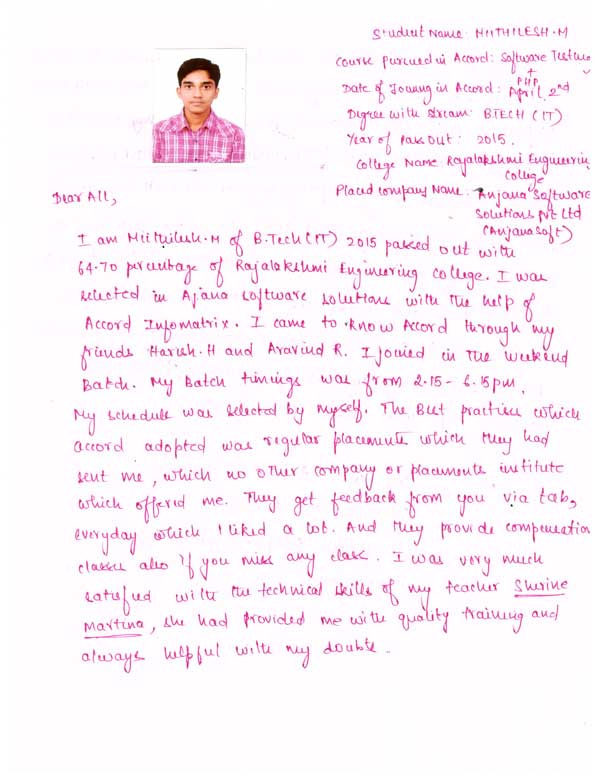 Student Name: MITHILESH.M
Course pursued in Accord: Software Testing
+
PHP
Date of Joining in Accord: April 2nd
Degree with stream: BTECH (IT)
Year of Pass Out: 2015.
College Name: Rajalakshmi Engineering
College
Placed company Name: Anjana Software
Solutions Pvt Ltd
(AnjanaSoft)
Dear All,
I am Mithilesh.M of B.Tech (IT) 2015 passed out with
64.70 percentage of Rajalakshmi Engineering College. I was
selected in Ajana software solutions with the help of
Accord Infomatrix. I came to know Accord through my
friends Harish.H and Aravind R. I joined in the weekend
Batch. My Batch timings was from 2.15 - 6.15pm.
My schedule was selected by myself. The Best practise which
accord adopted was regular placements which they had
sent me, which no other company or placements institute
which offered me. They get feedback from you via tab,
everyday which I liked a lot. And they provide compensation
classes also if you miss any class. I was very much
satisfied with the technical skills of my teacher Sherine
Martina, she had provided me with quality training and
always helpful with my doubts.